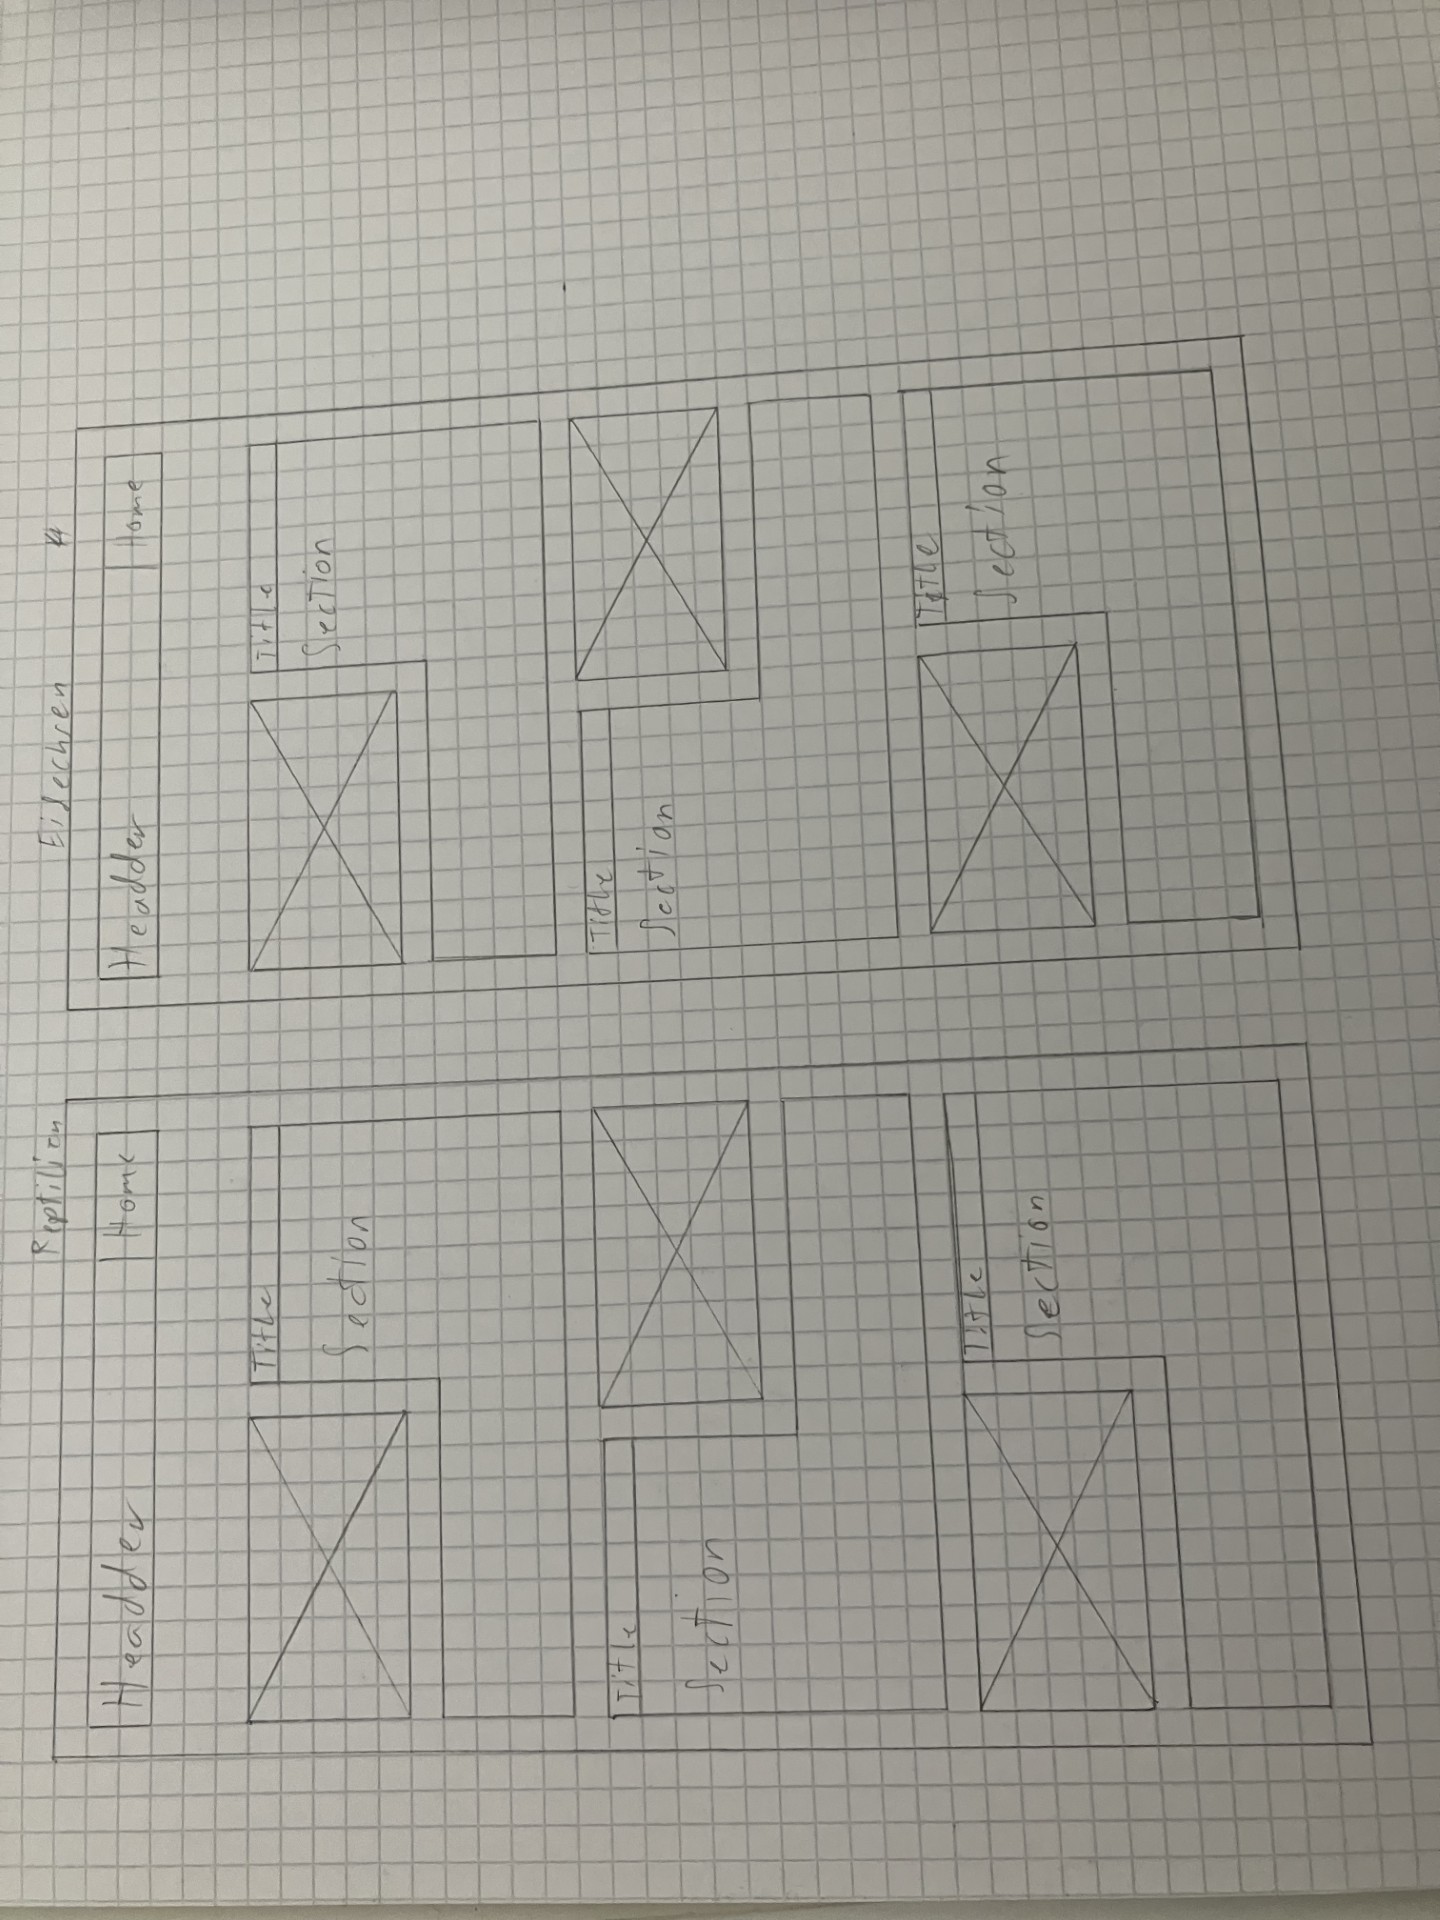 Reptilien
Headder Home
Title
Section
Title
Section
Title
Section
Eidechsen
Headder Home
Title
Section
Title
Section
Title
Section